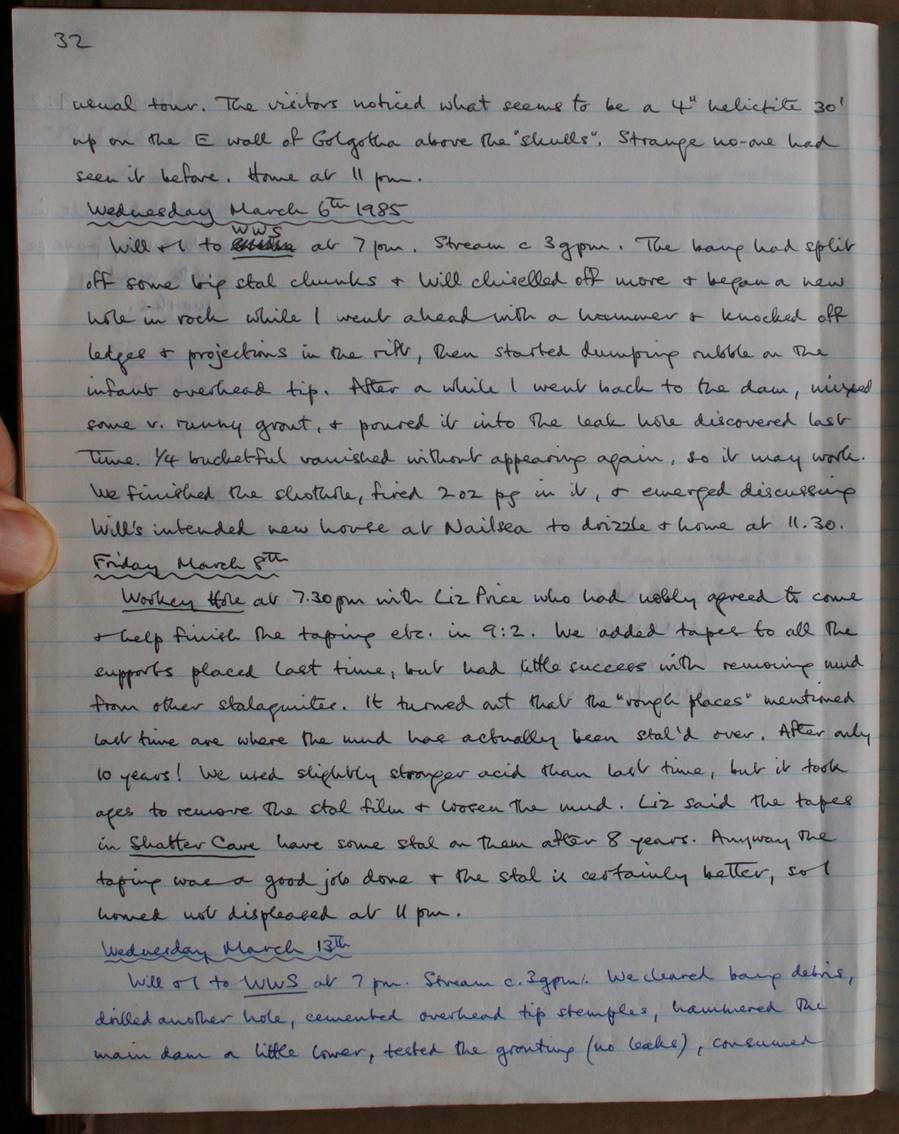 32
usual tour. The visitors noticed what seems to be a 4" helictite 30'
up on the E wall of Golgotha above the "skulls". Strange no-one had
seen it before. Home at 11 pm.
Wednesday March 6th 1985
WWS
Will & I to at 7 pm. Stream c 3gpm. The bang had split
off some big stal chunks & Will chiselled off more & began a new
hole in rock while I went ahead with a hammer & knocked off
ledges & projections in the rift, then started dumping rubble on the
infant overhead tip. After a while I went back to the dam, mixed
some v. runny grout, & poured it into the leak hole discovered last
time. 1/4 bucketful vanished without appearing again, so it may work.
We finished the shothole, fired 2 oz pg in it, & emerged discussing
Will's intended new house at Nailsea to drizzle & home at 11.30.
Friday March 8th
Wookey Hole at 7.30pm with Liz Price who had nobly agreed to come
& help finish the taping etc. in 9:2. We added tapes to all the
supports placed last time, but had little success with removing mud
from other stalagmites. It turned out that the "rough places" mentioned
last time are where the mud has actually been stal'd over. After only
10 years! We used slightly stronger acid than last time, but it took
ages to remove the stal film & loosen the mud. Liz said the tapes
in Shatter Cave have some stal on them after 8 years. Anyway the
taping was a good job done & the stal is certainly better, so I
homed not displeased at 11 pm.
Wednesday March 13th
Will & I to WWS at 7 pm. Stream c. 3gpm. We cleared bang debris,
drilled another hole, cemented overhead tip stemples, hammered the
main dam a little lower, tested the grouting (no leaks), consumed